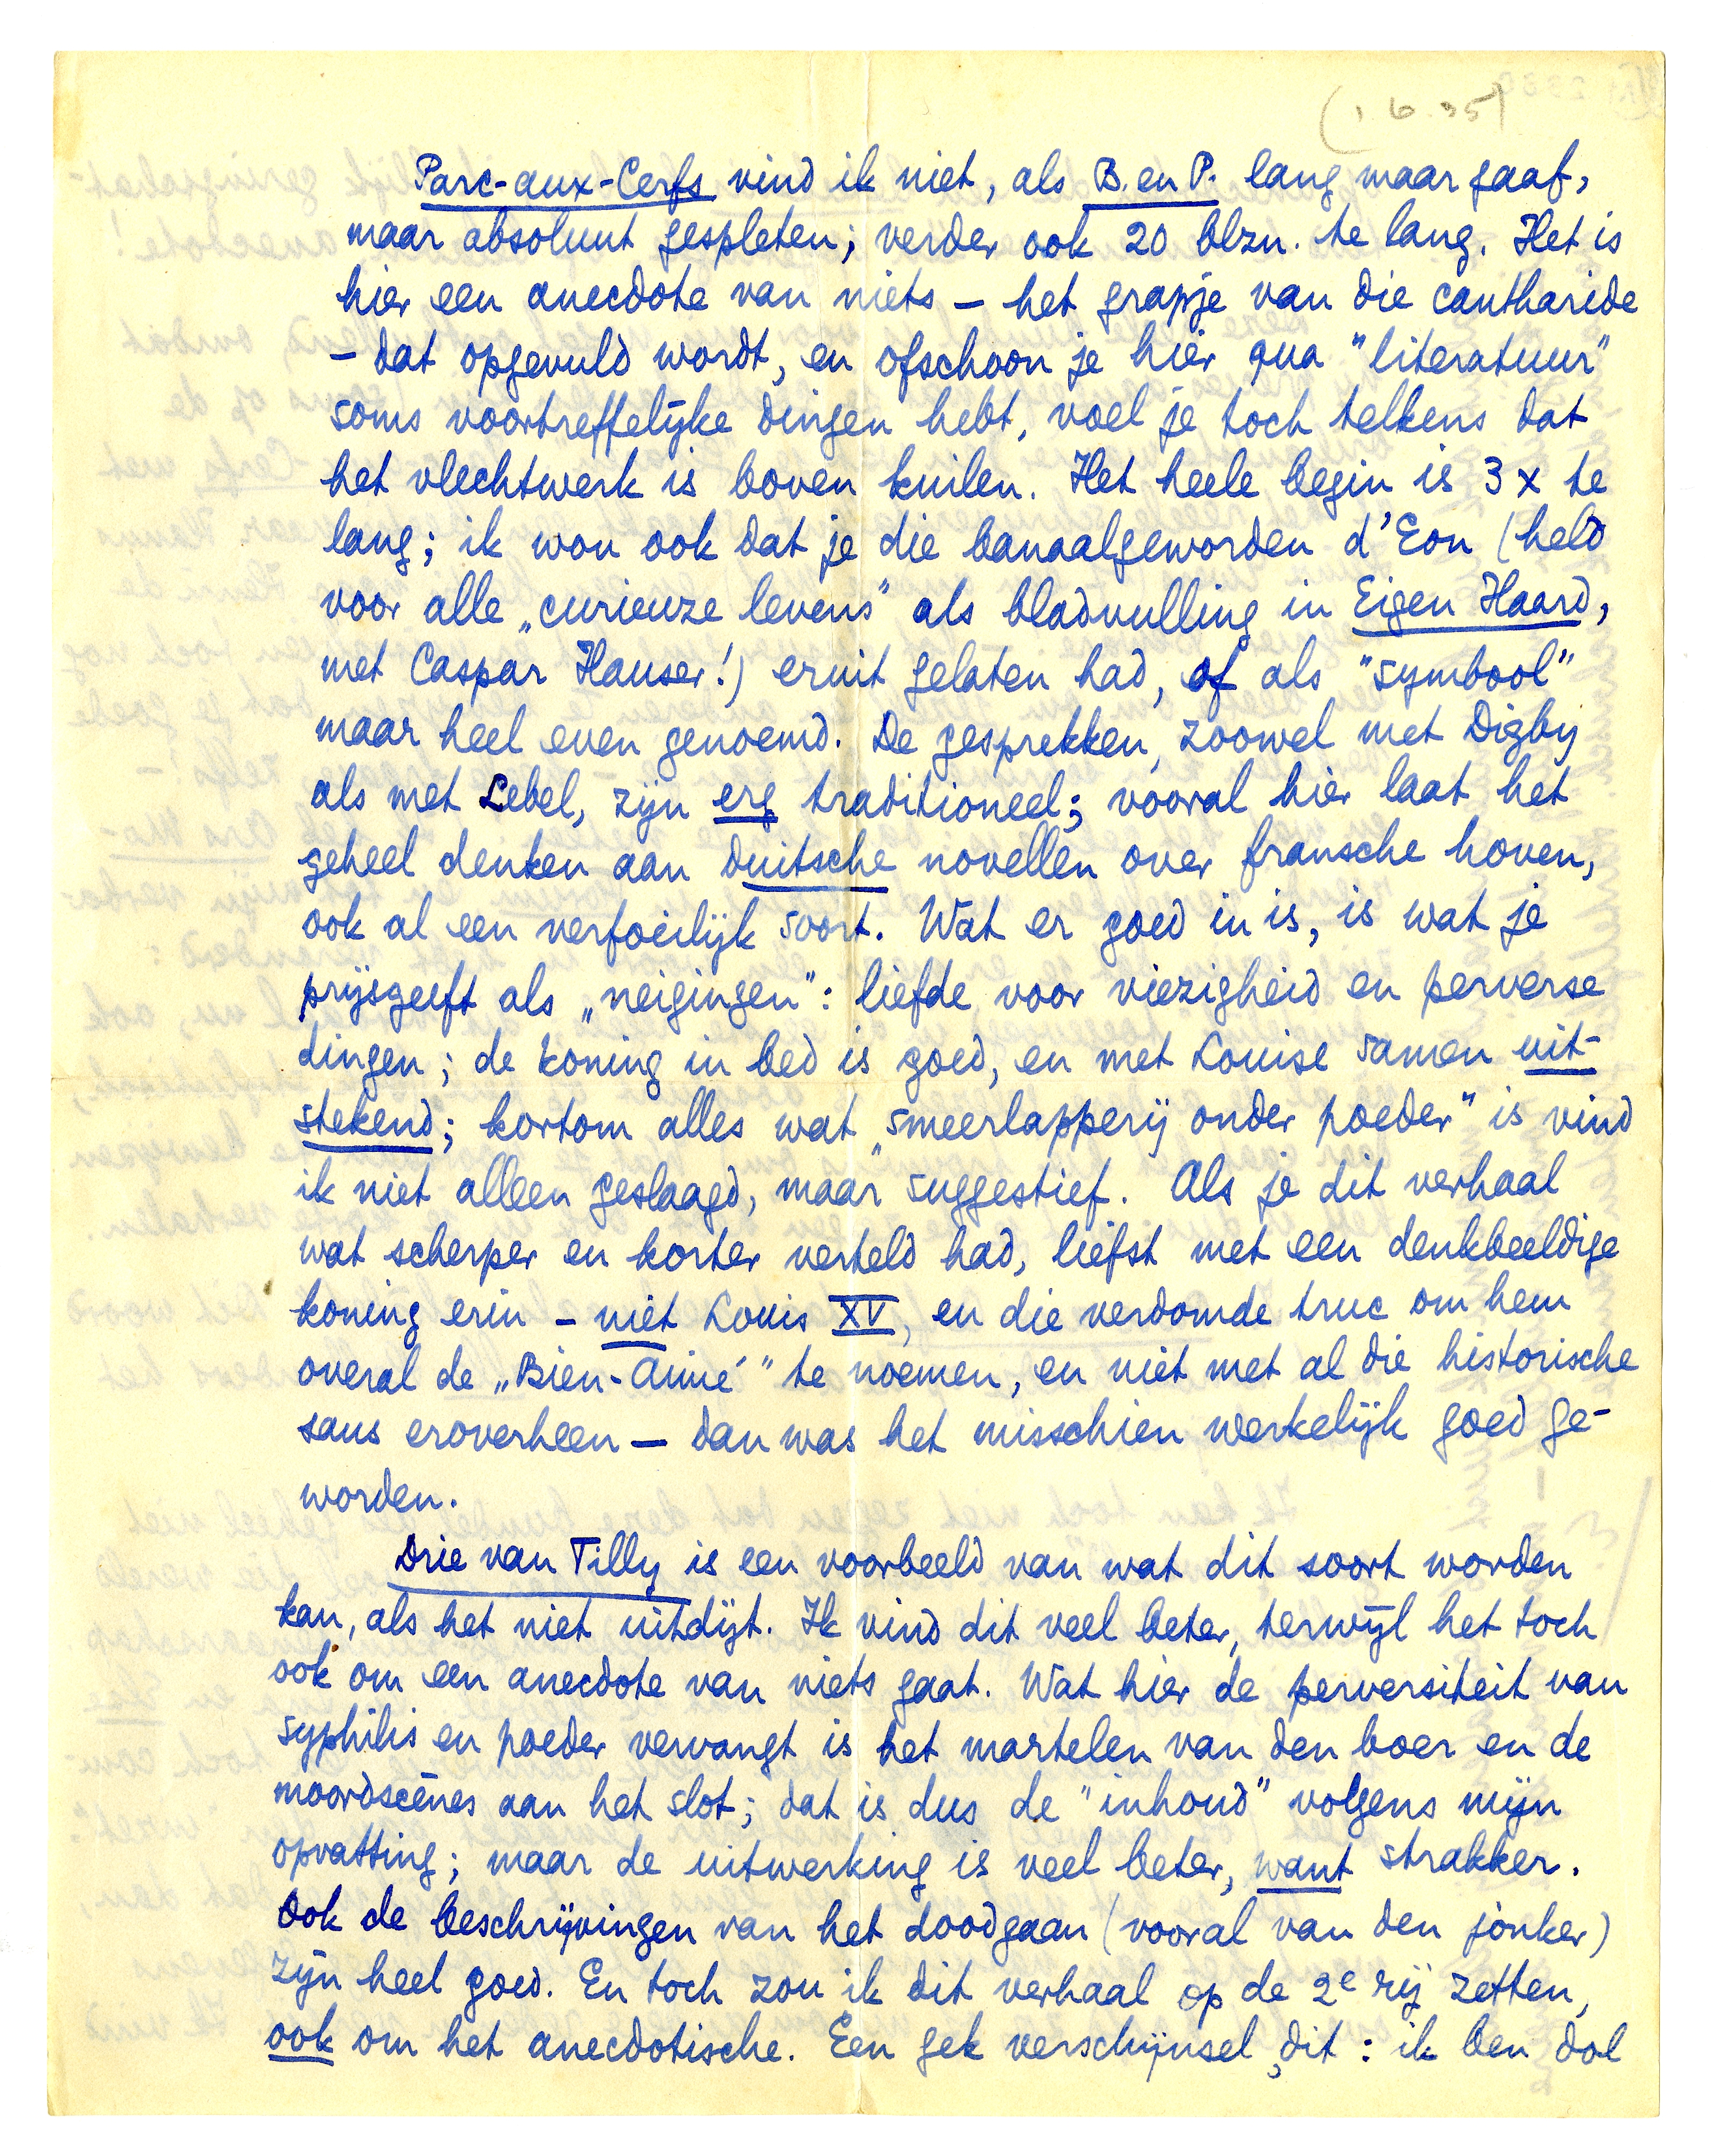 (1.6.35)
Parc-aux-Cerfs vind ik niet, als B. en P. lang maar gaaf,
maar absoluut gespleten; verder ook 20 blzn. te lang. Het is
hier een anecdote van niets — het grapje van die cantharide
— dat opgevuld wordt, en ofschoon je hier qua "literatuur"
soms voortreffelijke dingen hebt, voel je toch telkens dat
het vlechtwerk is boven kuilen. Het heele begin is 3 x te
lang; ik wou ook dat je die banaalgeworden d'Eon (held
voor alle „curieuze levens" als bladvulling in Eigen Haard,
met Caspar Hauser!) eruit gelaten had, of als "symbool"
maar heel even genoemd. De gesprekken, zoowel met Digby
als met Lebel, zijn erg traditioneel; vooral hier laat het
geheel denken aan duitsche novellen over fransche hoven,
ook al een verfoeilijk soort. Wat er goed in is, is wat je
prijsgeeft als „neigingen": liefde voor viezigheid en perverse
dingen; de koning in bed is goed, en met Louise samen uit-
stekend; kortom alles wat „smeerlapperij onder poeder" is vind
ik niet alleen geslaagd, maar suggestief. Als je dit verhaal
wat scherper en korter verteld had, liefst met een denkbeeldige
koning erin — niet Louis XV, en die verdomde truc om hem
overal de „Bien-Aimé" te noemen, en niet met al die historische
saus eroverheen — dan was het misschien werkelijk goed ge-
worden.
Drie van Tilly is een voorbeeld van wat dit soort worden
kan, als het niet uitdijt. Ik vind dit veel beter, terwijl het toch
ook om een anecdote van niets gaat. Wat hier de perversiteit van
syphilis en poeder vervangt is het martelen van den boer en de
moordscènes aan het slot; dat is dus de "inhoud" volgens mijn
opvatting; maar de uitwerking is veel beter, want strakker.
Ook de beschrijvingen van het doodgaan (vooral van den jonker)
zijn heel goed. En toch zou ik dit verhaal op de 2e rij zetten,
ook om het anecdotische. Een gek verschijnsel, dit: ik ben dol